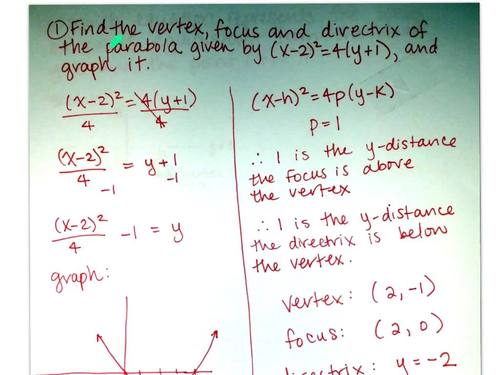 ① Find the vertex, focus and directrix of
the parabola given by (x-2)²=4(y+1), and
graph it.
(x-2)²/4 = 4(y+1)/4
(x-2)²/4 = y+1
-1 -1
(x-2)²/4 -1 = y
graph:
(x-h)²=4p(y-k)
p=1
∴ 1 is the y-distance
the focus is above
the vertex
∴ 1 is the y-distance
the directrix is below
the vertex.
vertex: (2,-1)
focus: (2,0)
directrix: y=-2